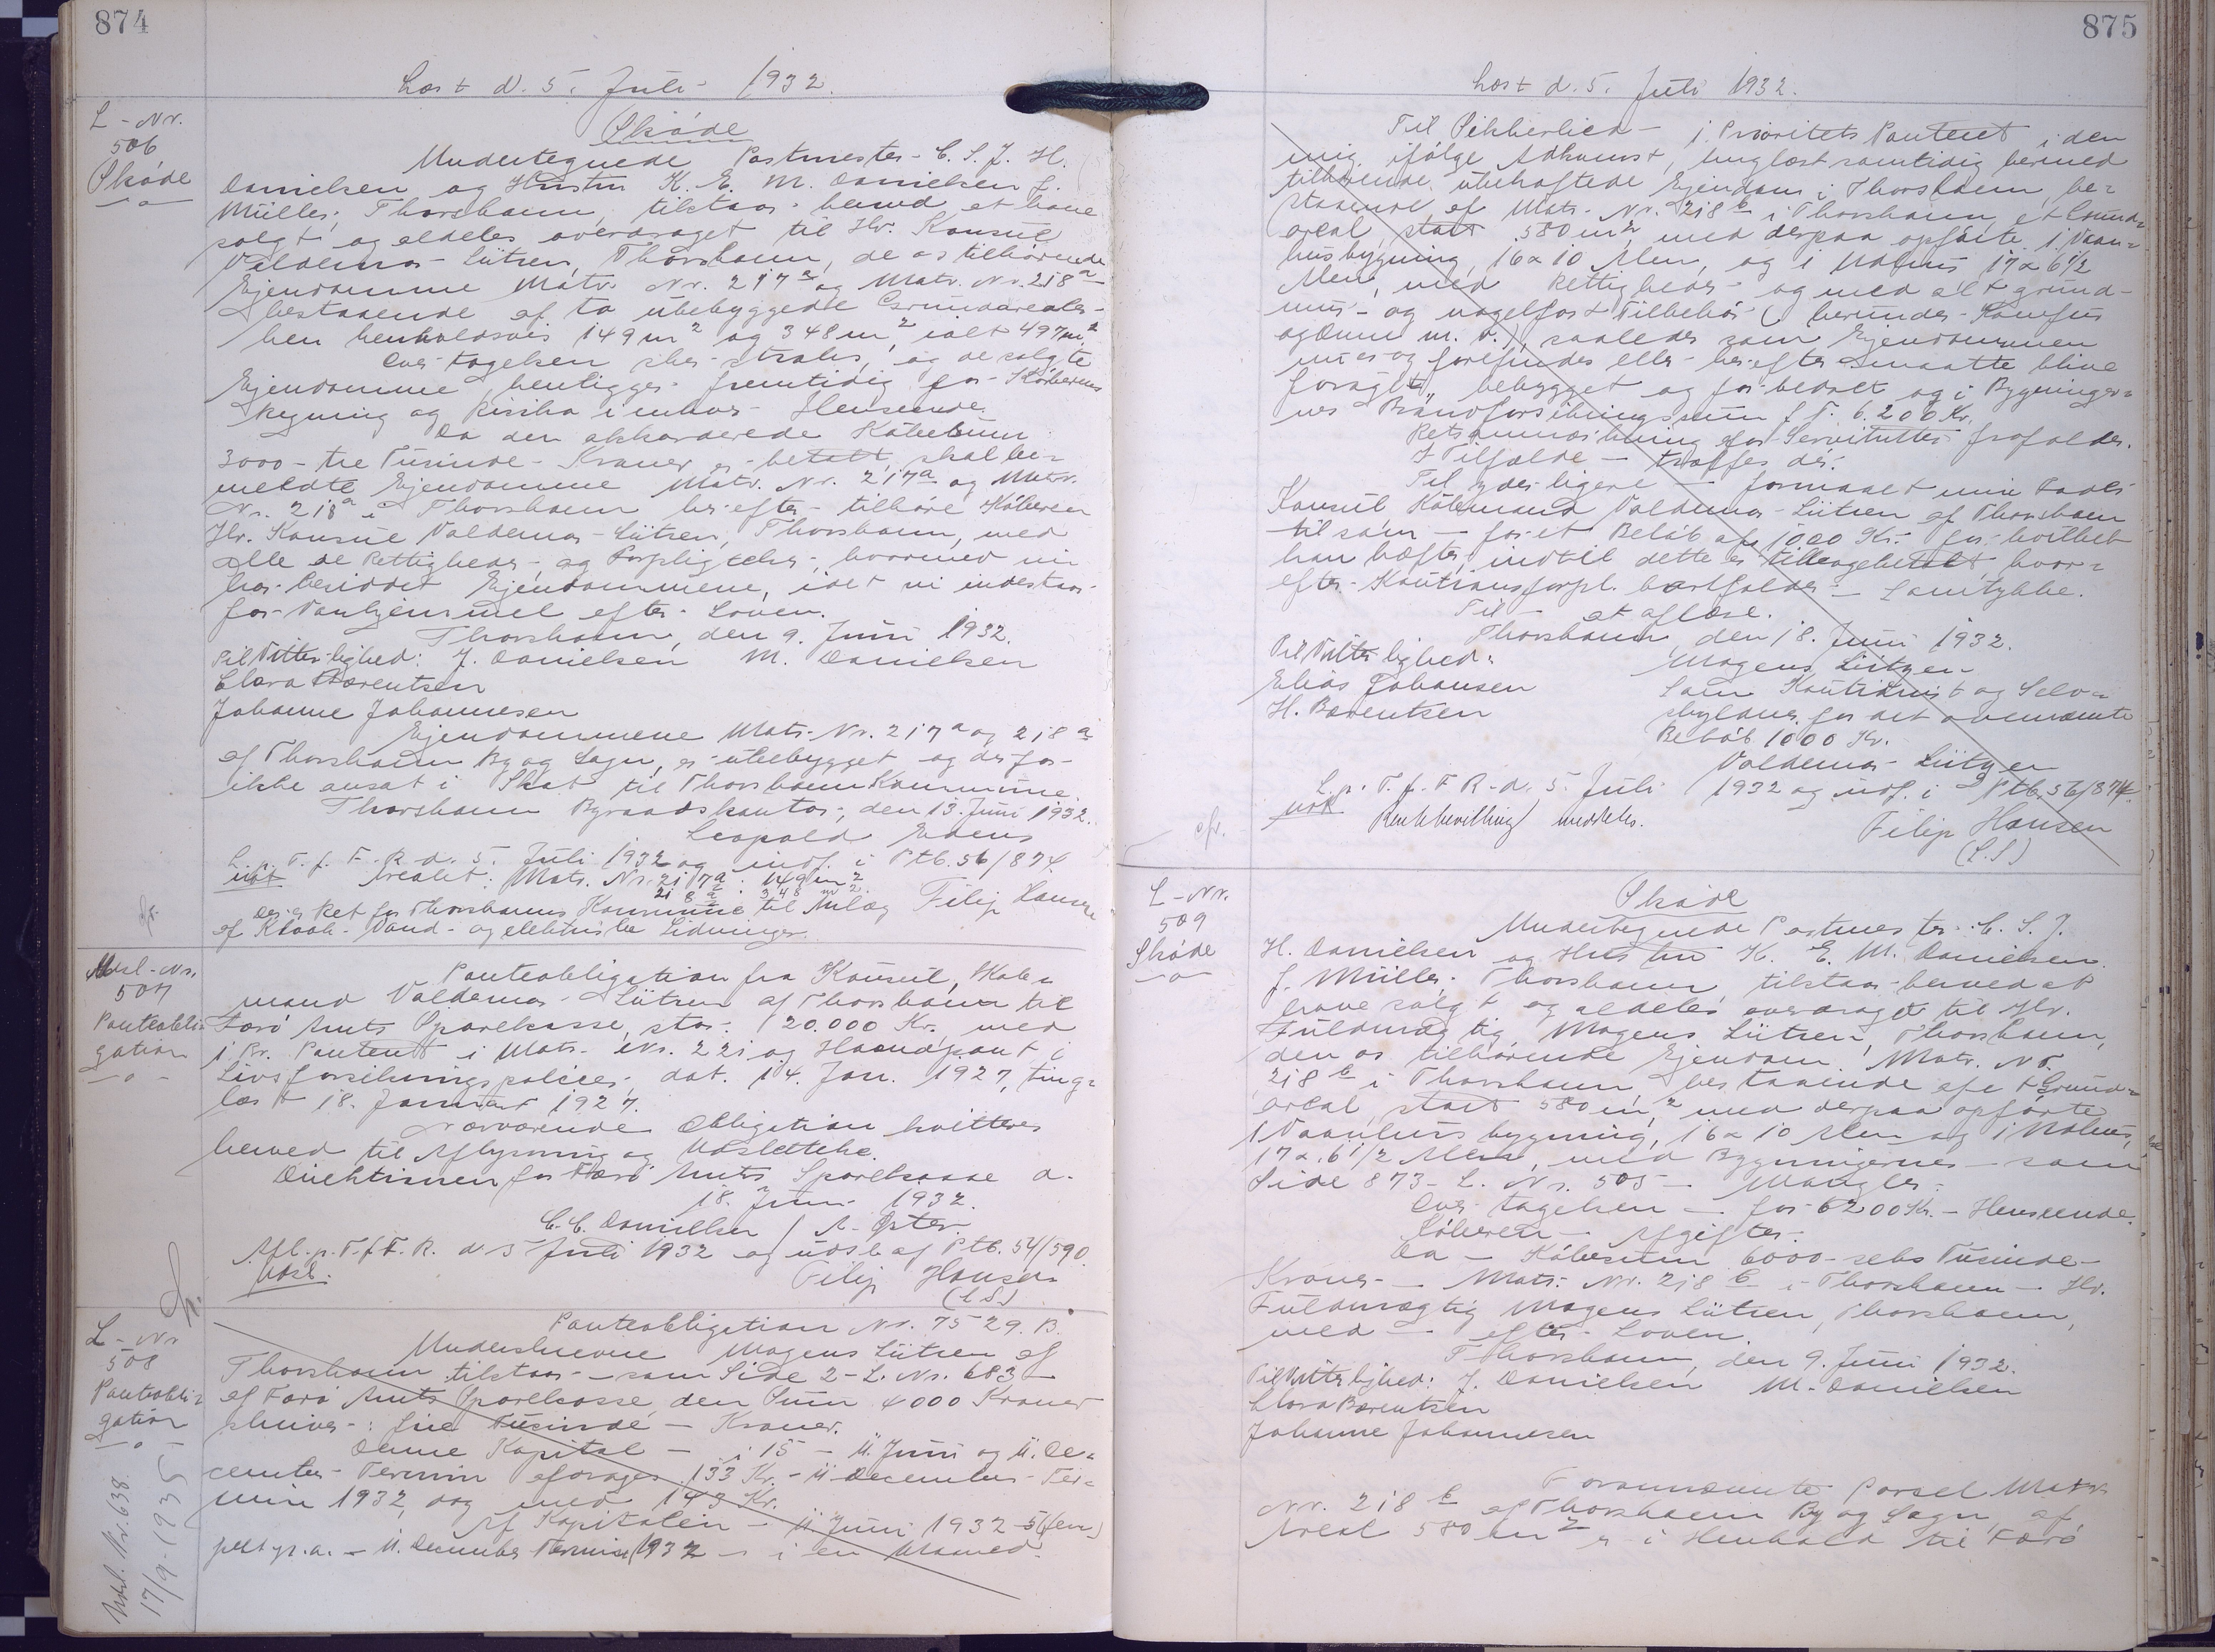 874
Læst d. 5. Juli 1932.
L-Nr.
506
Skøde
Skøde
Undertegnede Postmester C. S. J. H.
Danielsen og Hustru K. E. M. Danielsen f.
Müller, Thorshavn, tilstaar herved at have
solgt og aldeles overdraget til Hr. Konsul
Valdemar Lützen, Thorshavn, de os tilhørende
Ejendomme Matr. Nr. 217a og Matr. Nr. 218a
bestaaende af to ubebyggede Grundarealer
hen henholdsvis 149 m2 og 348 m2, ialt 497 m2
Overtagelsen sker straks, og de solgte
Ejendomme henligger fremtidig for Køberens
Regning og Risiko i enhver Henseende.
Da den akkorderede Købesum
3000 - tre Tusinde - Kroner er betalt, skal be=
meldte Ejendomme Matr. Nr. 217a og Matr.
Nr. 218a i Thorshavn herefter tilhøre Køberen
Hr. Konsul Valdemar Lützen, Thorshavn, med
alle de Rettigheder og Forpligtelser, hvormed vi
har besiddet Ejendommene, idet vi indestaar
for Vanhjemmel efter Loven.
Thorshavn, den 9. Juni 1932.
Til Vitterlighed: J. Danielsen M. Danielsen
Clara Bærentsen
Johanne Johannesen
Ejendommene Matr. Nr. 217a og 218a
af Thorshavn By og Sogn, er ubebygget og derfor
ikke ansat i Skat til Thorshavn Kommune.
Thorshavn Byraadskontor, den 13. Juni 1932.
Leopold
L. p. T. f. F. R. d. 5. Juli 1932 og indf. i Ptb. 56/874.
Arealet: Matr. Nr. 217a: 149 m2
218a: 348 m2.
Der er Ret for Thorshavns Kommune til Anlæg Filip Hansen
af Kloak- Vand- og elektriske Ledninger.
Udsl-Nr.
507
Panteobli
gation
Panteobligation fra Konsul, Køb=
mand Valdemar Lützen af Thorshavn til
Færø Amts Sparekasse, stor: 20.000 Kr. med
1 Pr. Panteret i Matr. Nr. 221 og Haandpant i
Livsforsikringspolicer, dat. 14. Jan. 1927, ting=
læst 18. Januar 1927.
Nærværende Obligation kvitteres
herved til Aflysning og Udslettelse.
Direktionen for Færø Amts Sparekasse d.
18. Juni 1932.
C. C. Danielsen / A. Øster
Afl. p. T. f. F. R. d. 5 Juli 1932 og udsl. af Ptb. 54/590.
Udsl. Filip Hansen
(L.S.)
L-Nr
508
Panteobli=
gation
Udsl. Nr. 638.
17/9-1935
Panteobligation Nr. 7529. B.
Underskrevne Mogens Lützen af
Thorshavn tilstaar - som Side 2 - L. Nr. 683 -
af Færø Amts Sparekasse den Sum 4000 Kroner
skriver: fire Tusinde - Kroner.
Denne Kapital - i 15 - 11. Juni og 11. De=
cember Termin afdrages 133 Kr. - 11 December Ter=
min 1932, dog med 143 Kr.
Af Kapitalen - 11 Juni 1932 5 (fem)
pCt p. a. - 11. December Termin 1932 - i en Maaned.
875
Læst d. 5. Juli 1932.
Til Sikkerhed - 1. Prioritets Panteret i den
mig ifølge Adkomst, tinglæst samtidig hermed
tilhørende ubehæftede Ejendom i Thorshavn, be=
staaende af Matr. Nr. 218b i Thorshavn, et Grund=
areal, stort 580 m2, med derpaa opførte 1 Vaan=
husbygning, 16 x 10 Alen, og 1 Udhus 17 x 6 1/2
Alen, med Rettigheder og med alt grund-
mur- og nagelfast Tilbehør (herunder Komfur
ogOvne m. v.), saaledes som Ejendommen
nu er og forefindes eller herefter maatte blive
forøget, bebygget og forbedret og i Bygninger=
nes Brandforsikringssum f. T. 6.200 Kr.
Retsanmærkning for Servitutter frafalder.
I Tilfælde - træffes der.
Til yderligere - formaaet min Fader
Konsul Købmand Valdemar Lützen af Thorshavn
til som - for et Beløb af 1000 Kr. for hvilket
han hæfter indtil dette er tilbagebetalt hvor=
efter Kautionsforpl. bortfalder - Samtykke.
Til - at aflæse.
Thorshavn, den 18. Juni 1932.
Til Vitterlighed: Mogens Lützen
Elias Johansen Som Kautionist og Selv=
H. Bærentsen skyldner for det ovennævnte
Beløb 1000 Kr.
Valdemar Lützen
L. p. T. f. F. R. d. 5. Juli 1932 og indf. i Ptb. 56/874.
Filip Hansen
(L.S.)
L-Nr.
509
Skøde
Skøde
Undertegnede Postmester C. S. J.
H. Danielsen og Hustru K. E. M. Danielsen
f. Müller, Thorshavn, tilstaar herved at
have solgt og aldeles overdraget til Hr.
Fuldmægtig Mogens Lützen, Thorshavn,
den os tilhørende Ejendom Matr. Nr.
218b i Thorshavn, bestaaende af et Grund=
areal, stort 580 m2, med derpaa opførte
1 Vaanhusbygning, 16 x 10 Alen og 1 Udhus,
17 x 6 1/2 Alen, med Bygningernes - som
Side 873 - L. Nr. 505 - Mangler.
Overtagelsen - for 6200 Kr. - Henseende.
Køberen - Afgifter.
Da - Købesum 6000 - seks Tusinde -
Kroner - Matr. Nr. 218b i Thorshavn - Hr.
Fuldmægtig Mogens Lützen, Thorshavn,
med - efter Loven.
Thorshavn, den 9. Juni 1932.
Til Vitterlighed: J. Danielsen M. Danielsen
Clara Bærentsen
Johanne Johannesen
Forannævnte Parsel Matr.
Nr. 218b af Thorshavn By og Sogn, af
Areal 580 m2 er i Henhold til Færø